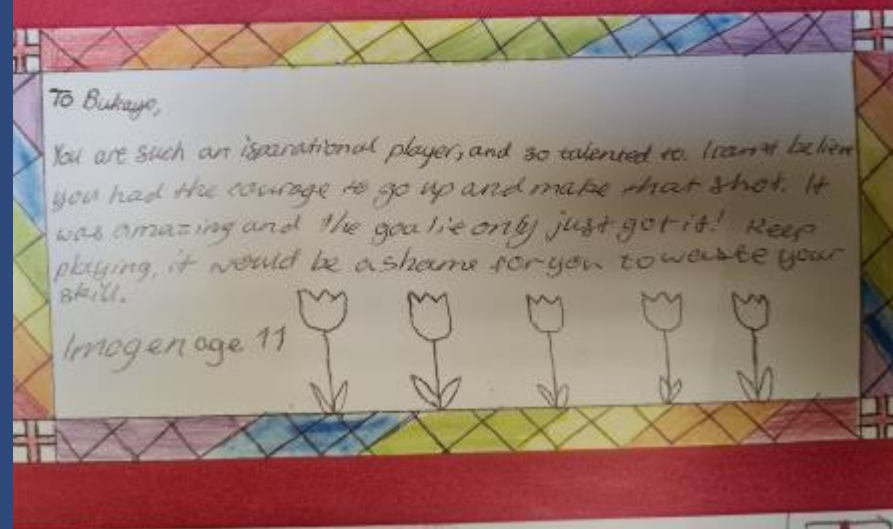 To Bukayo,
You are such an isparational player, and so talented to. I cannot believe
you had the courage to go up and make that shot. It
was amazing and the goalie only just got it! Keep
playing, it would be a shame for you to waste your
skill.
Imogen age 11